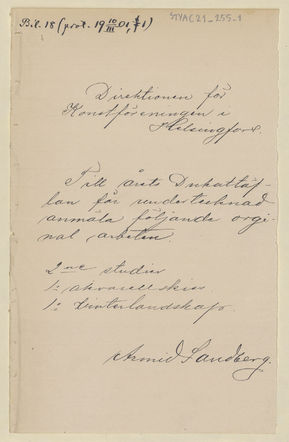 Bil. 18 (prot. 19 10/III 01, § 1)
STYAC21_255_1
Direktionen för
Konstföreningen i
Helsingfors.
Till årets Dukattäf-
lan får undertecknad
anmäla följande orgi-
nal arbeten.
2ne studier
1: akvarell skiss
1: Vinterlandskap.
Arvid Sandberg.